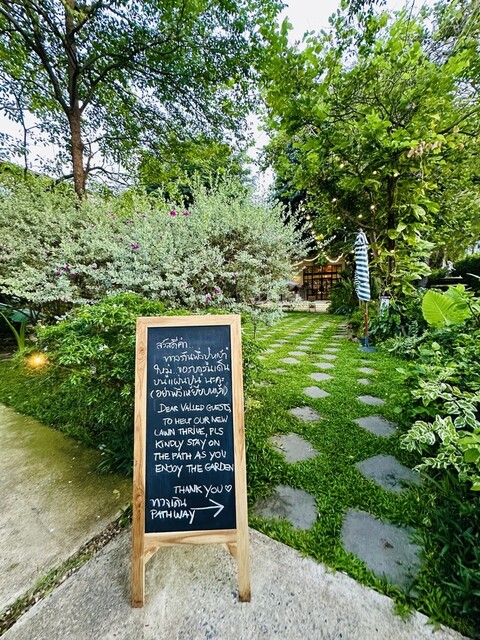 สวัสดีค่ะ
ทางร้านพึ่งปูหญ้า
ใหม่ ขอรบกวนเดิน
บนแผ่นปูน นะคะ
(อย่าพึ่งเหยียบหญ้า)
DEAR VALUED GUESTS,
TO HELP OUR NEW
LAWN THRIVE, PLS
KINDLY STAY ON
THE PATH AS YOU
ENJOY THE GARDEN
THANK YOU ♡
ทางเดิน
PATHWAY →